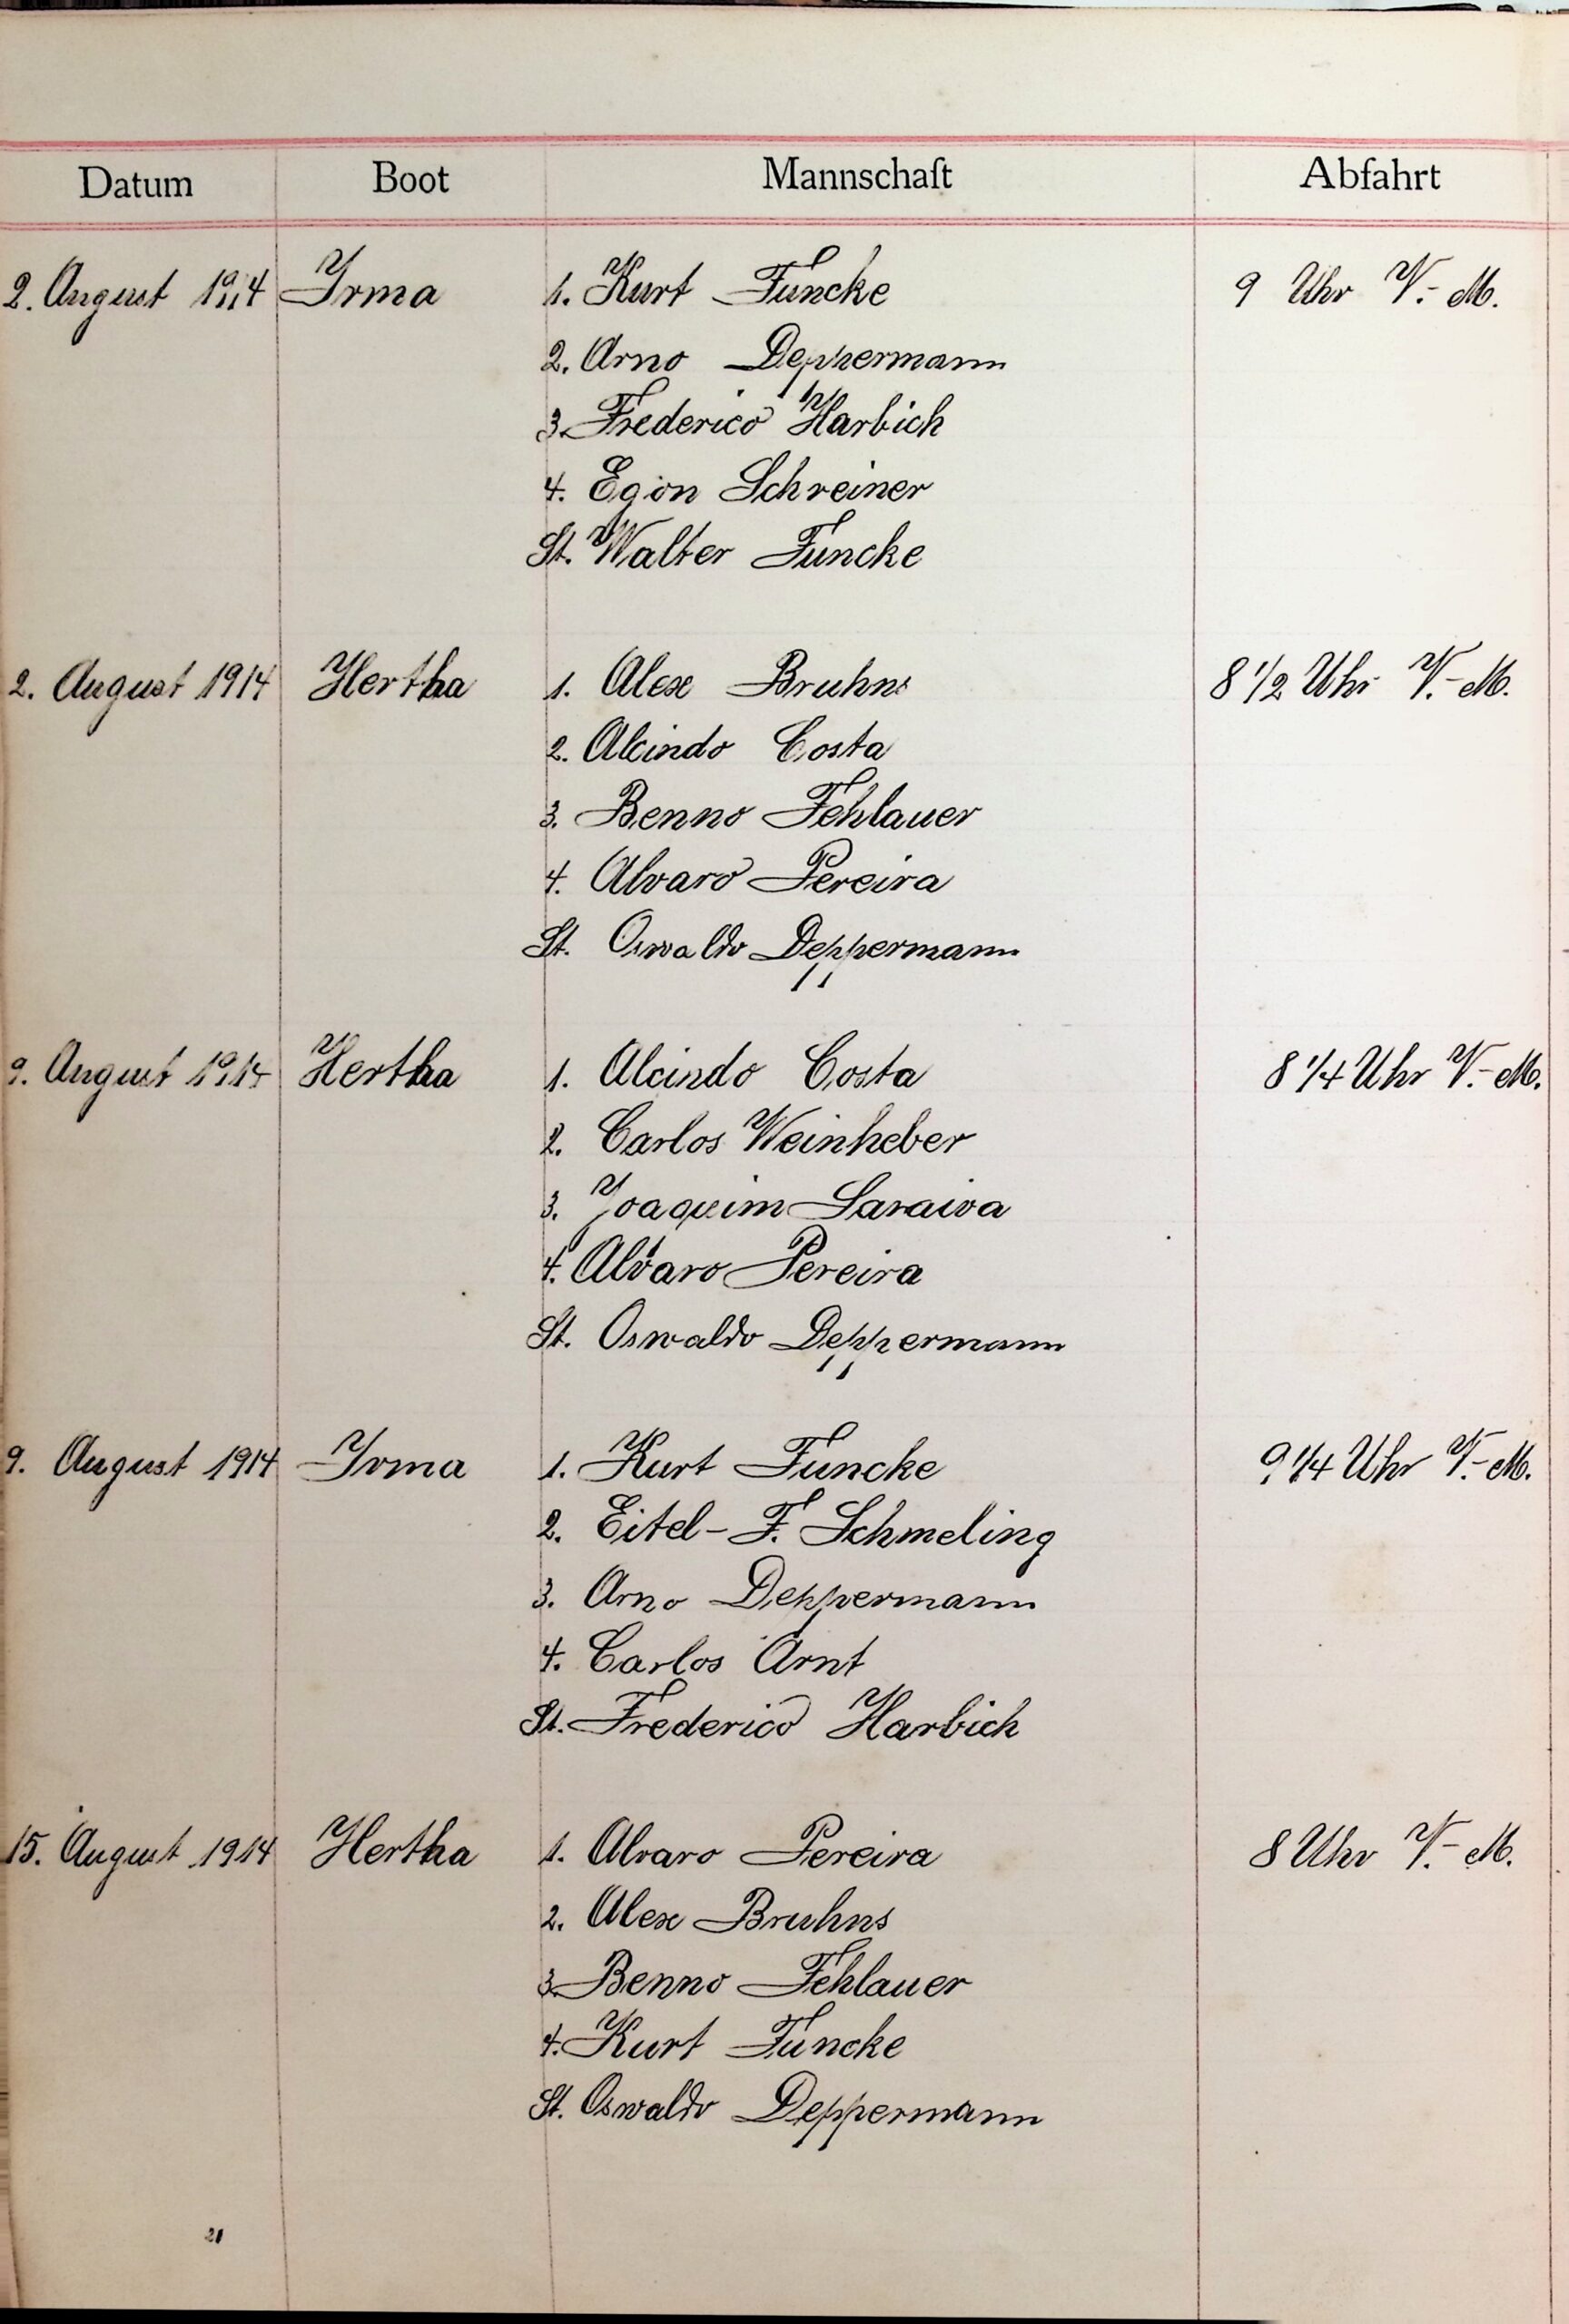 Datum Boot Mannschaft Abfahrt
2. August 1914 Irma 1. Kurt Funcke 9 Uhr V.-M.
2. Arno Deppermann
3. Frederico Harbich
4. Egon Schreiner
St. Walter Funcke
2. August 1914 Hertha 1. Alex Bruhns 8 1/2 Uhr V.-M.
2. Alcindo Costa
3. Benno Fehlauer
4. Alvaro Pereira
St. Oswaldo Deppermann
9. August 1914 Hertha 1. Alcindo Costa 8 1/4 Uhr V.-M.
2. Carlos Weinheber
3. Joaquim Saraiva
4. Alvaro Pereira
St. Oswaldo Deppermann
9. August 1914 Irma 1. Kurt Funcke 9 1/4 Uhr V.-M.
2. Eitel-F. Schmeling
3. Arno Deppermann
4. Carlos Arnt
St. Frederico Harbich
15. August 1914 Hertha 1. Alvaro Pereira 8 Uhr V.-M.
2. Alex Bruhns
3. Benno Fehlauer
4. Kurt Funcke
St. Oswaldo Deppermann
21